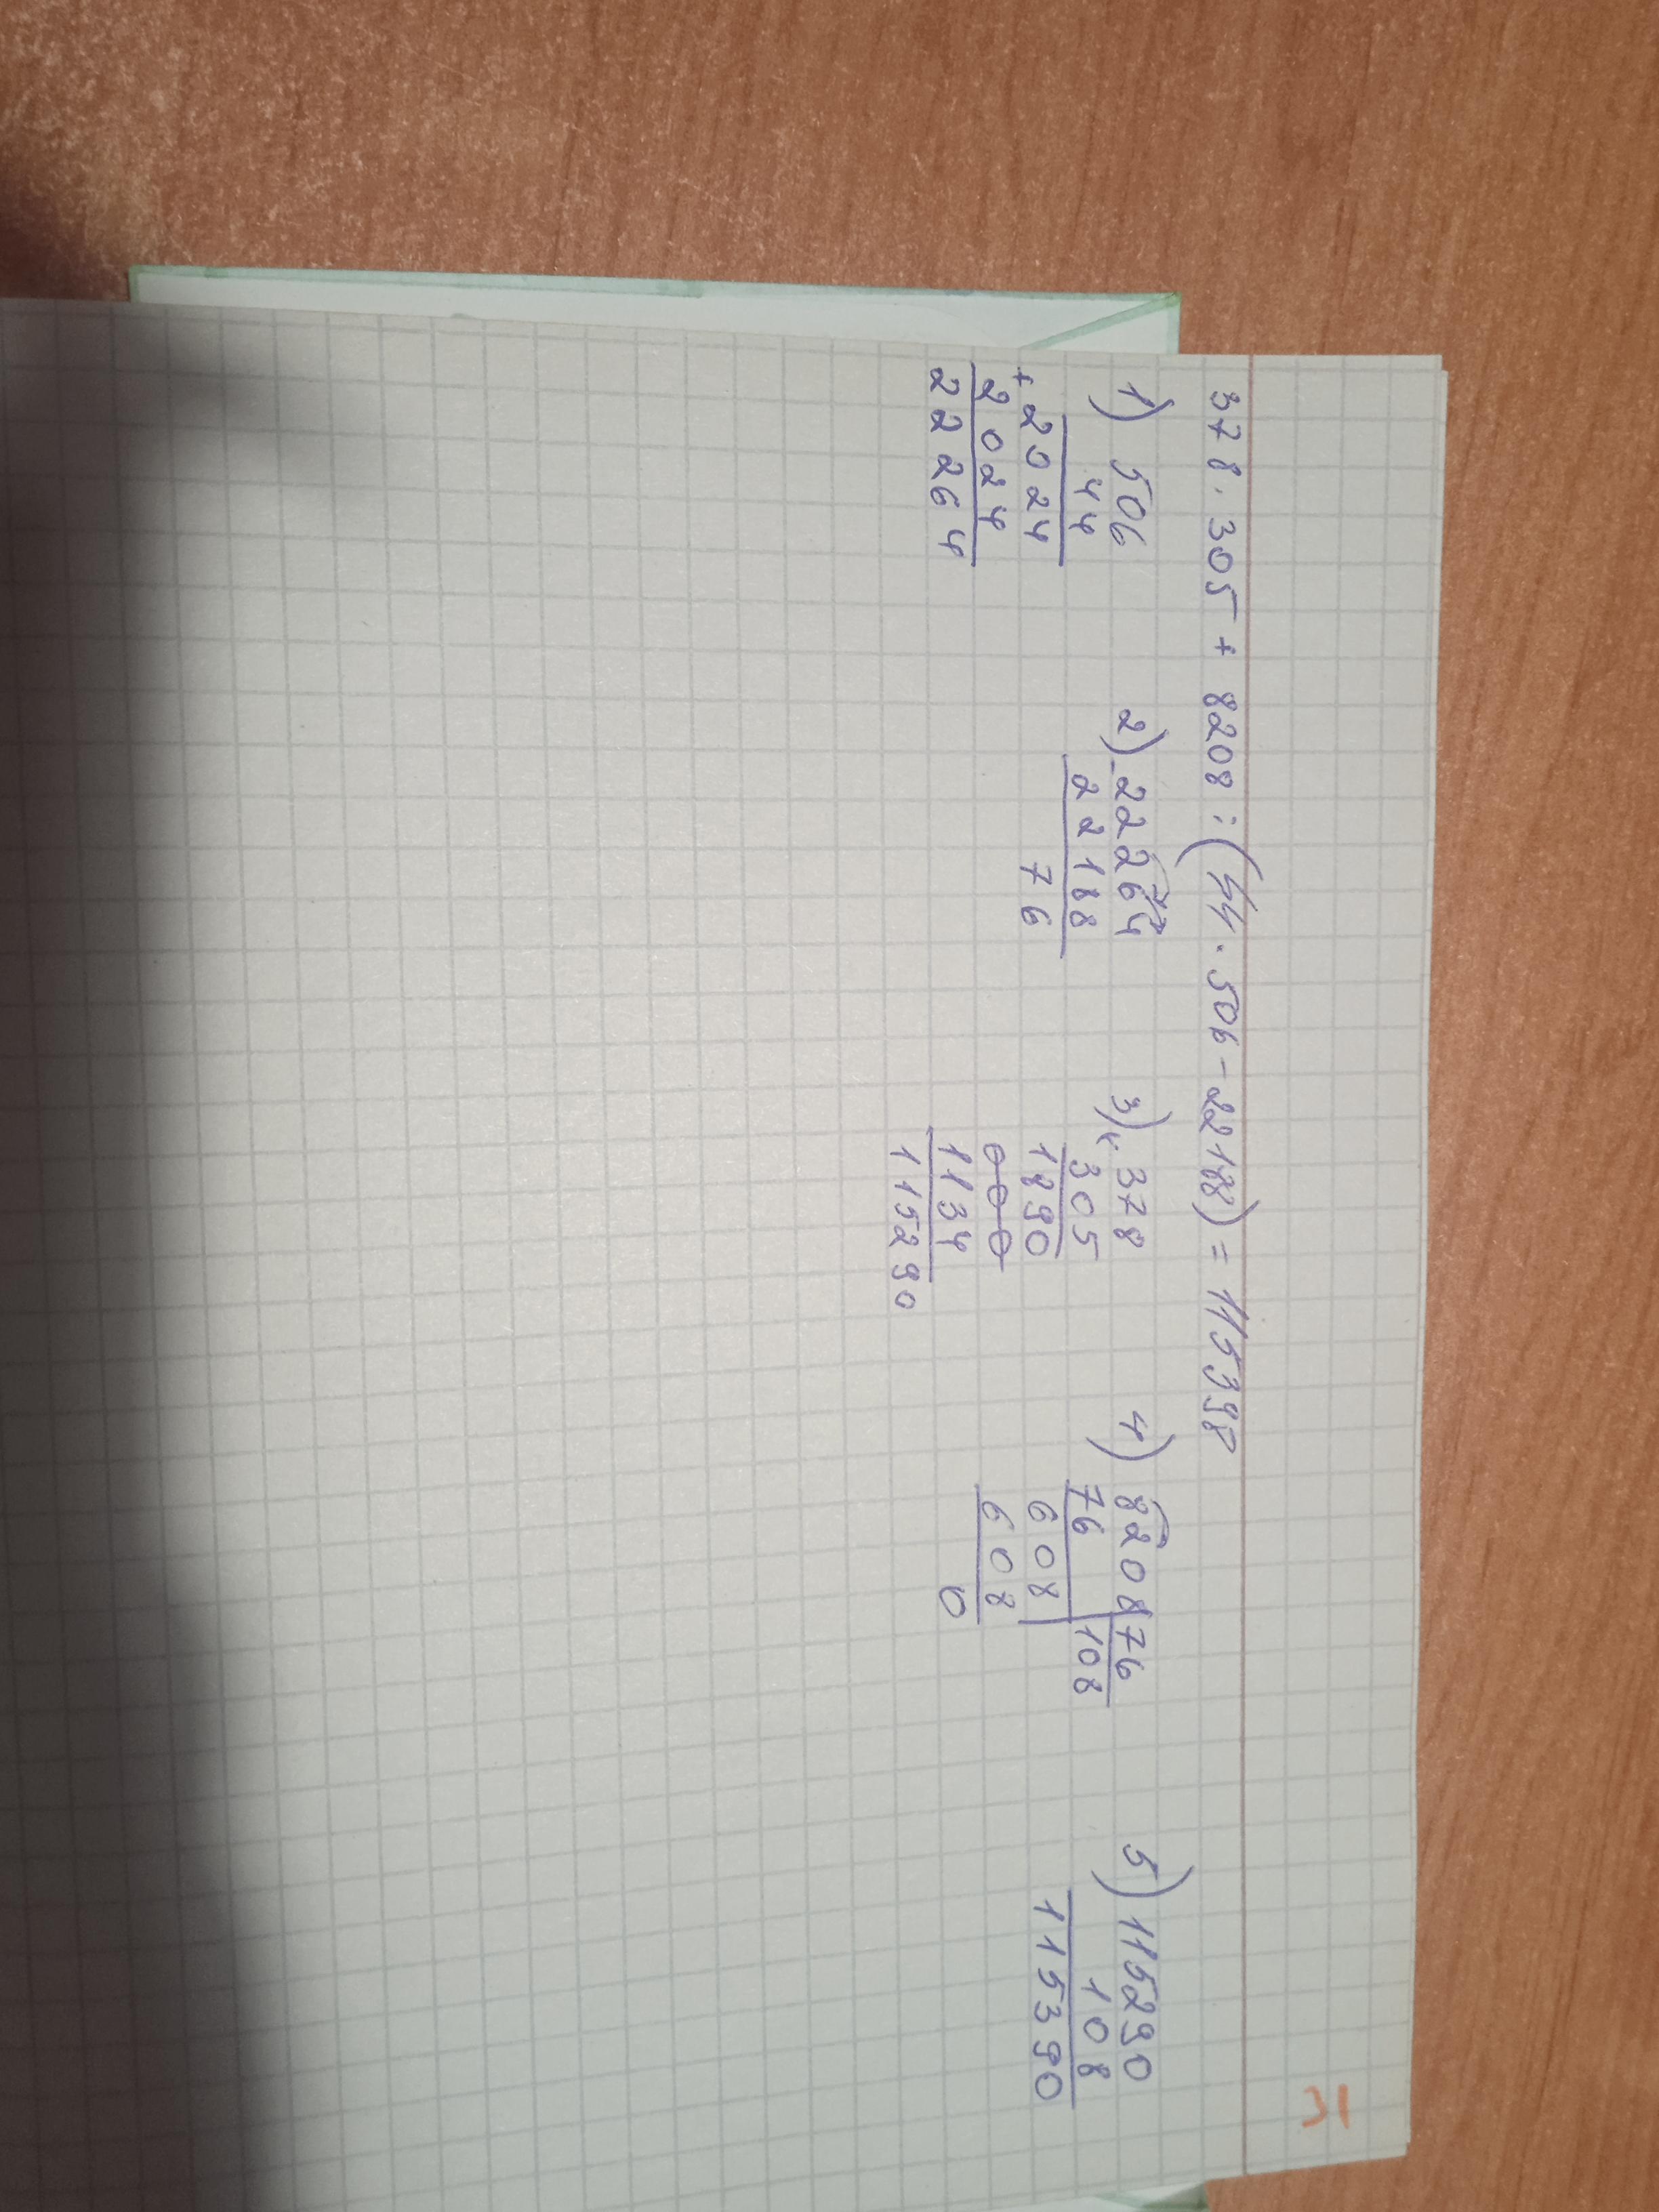 378 · 305 + 8208 : (44 · 506 - 22188) = 115398
1) 506
44
+ 2024
2024
22264
2) - 22264
22188
76
3) × 378
305
1890
000
1134
115290
4) 8208 76
76 108
608
608
0
5) 115290
108
115390